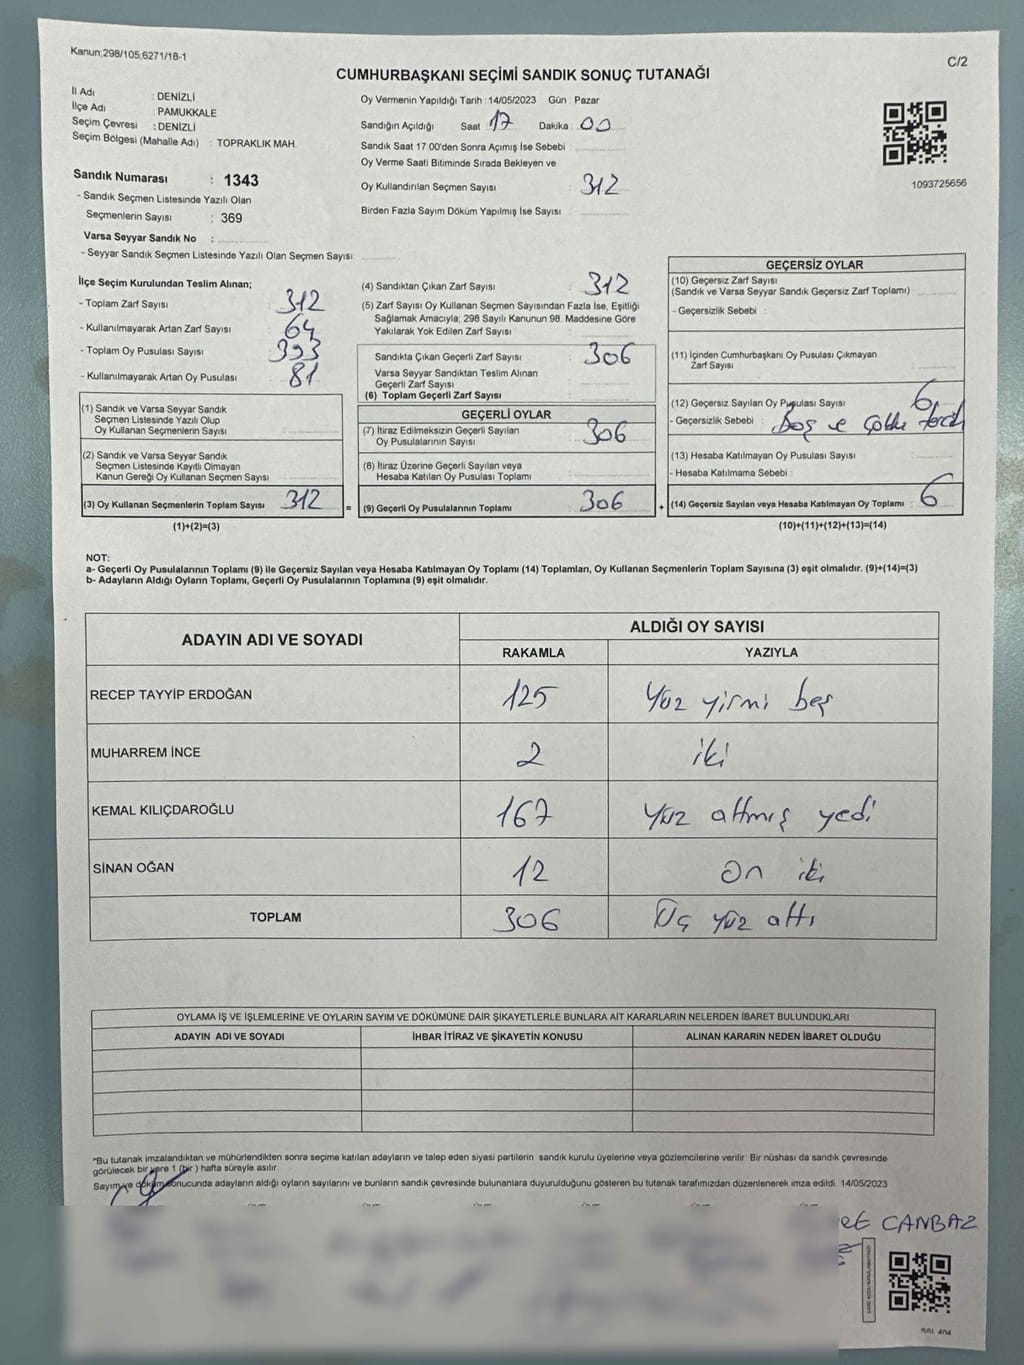 Kanun;298/105;6271/18-1
C/2
CUMHURBAŞKANI SEÇİMİ SANDIK SONUÇ TUTANAĞI
İl Adı : DENİZLİ
İlçe Adı : PAMUKKALE
Seçim Çevresi : DENİZLİ
Seçim Bölgesi (Mahalle Adı) : TOPRAKLIK MAH.
Sandık Numarası : 1343
- Sandık Seçmen Listesinde Yazılı Olan
Seçmenlerin Sayısı : 369
Varsa Seyyar Sandık No :
- Seyyar Sandık Seçmen Listesinde Yazılı Olan Seçmen Sayısı
Oy Vermenin Yapıldığı Tarih : 14/05/2023 Gün : Pazar
Sandığın Açıldığı Saat 17 Dakika 00
Sandık Saat 17.00'den Sonra Açımış İse Sebebi
Oy Verme Saati Bitiminde Sırada Bekleyen ve
Oy Kullandırılan Seçmen Sayısı : 312
Birden Fazla Sayım Döküm Yapılmış İse Sayısı :
1093725656
İlçe Seçim Kurulundan Teslim Alınan;
- Toplam Zarf Sayısı : 312
- Kullanılmayarak Artan Zarf Sayısı : 64
- Toplam Oy Pusulası Sayısı : 393
- Kullanılmayarak Artan Oy Pusulası : 81
(1) Sandık ve Varsa Seyyar Sandık
Seçmen Listesinde Yazılı Olup
Oy Kullanan Seçmenlerin Sayısı :
(2) Sandık ve Varsa Seyyar Sandık
Seçmen Listesinde Kayıtlı Olmayan
Kanun Gereği Oy Kullanan Seçmen Sayısı :
(3) Oy Kullanan Seçmenlerin Toplam Sayısı 312
(1)+(2)=(3)
(4) Sandıktan Çıkan Zarf Sayısı : 312
(5) Zarf Sayısı Oy Kullanan Seçmen Sayısından Fazla İse, Eşitliği
Sağlamak Amacıyla; 298 Sayılı Kanunun 98. Maddesine Göre
Yakılarak Yok Edilen Zarf Sayısı :
Sandıkta Çıkan Geçerli Zarf Sayısı : 306
Varsa Seyyar Sandıktan Teslim Alınan
Geçerli Zarf Sayısı :
(6) Toplam Geçerli Zarf Sayısı :
GEÇERLİ OYLAR
(7) İtiraz Edilmeksizin Geçerli Sayılan
Oy Pusulalarının Sayısı : 306
(8) İtiraz Üzerine Geçerli Sayılan veya
Hesaba Katılan Oy Pusulası Toplamı :
= (9) Geçerli Oy Pusulalarının Toplamı : 306
GEÇERSİZ OYLAR
(10) Geçersiz Zarf Sayısı
(Sandık ve Varsa Seyyar Sandık Geçersiz Zarf Toplamı) :
- Geçersizlik Sebebi :
(11) İçinden Cumhurbaşkanı Oy Pusulası Çıkmayan
Zarf Sayısı :
(12) Geçersiz Sayılan Oy Pusulası Sayısı : 6
- Geçersizlik Sebebi : Boş ve
(13) Hesaba Katılmayan Oy Pusulası Sayısı :
- Hesaba Katılmama Sebebi :
+ (14) Geçersiz Sayılan veya Hesaba Katılmayan Oy Toplamı : 6
(10)+(11)+(12)+(13)=(14)
NOT:
a- Geçerli Oy Pusulalarının Toplamı (9) ile Geçersiz Sayılan veya Hesaba Katılmayan Oy Toplamı (14) Toplamları, Oy Kullanan Seçmenlerin Toplam Sayısına (3) eşit olmalıdır. (9)+(14)=(3)
b- Adayların Aldığı Oyların Toplamı, Geçerli Oy Pusulalarının Toplamına (9) eşit olmalıdır.
ADAYIN ADI VE SOYADI ALDIĞI OY SAYISI
RAKAMLA YAZIYLA
RECEP TAYYİP ERDOĞAN 125 Yüz yirmi beş
MUHARREM İNCE 2 iki
KEMAL KILIÇDAROĞLU 167 Yüz altmış yedi
SİNAN OĞAN 12 On iki
TOPLAM 306 Üç yüz altı
OYLAMA İŞ VE İŞLEMLERİNE VE OYLARIN SAYIM VE DÖKÜMÜNE DAİR ŞİKAYETLERLE BUNLARA AİT KARARLARIN NELERDEN İBARET BULUNDUKLARI
ADAYIN ADI VE SOYADI İHBAR İTİRAZ VE ŞİKAYETİN KONUSU ALINAN KARARIN NEDEN İBARET OLDUĞU
*Bu tutanak imzalandıktan ve mühürlendikten sonra seçime katılan adayların ve talep eden siyasi partilerin sandık kurulu üyelerine veya gözlemcilerine verilir. Bir nüshası da sandık çevresinde
görülecek bir yere 1 (bir) hafta süreyle asılır.
Sayım ve döküm sonucunda adayların aldığı oyların sayılarını ve bunların sandık çevresinde bulunanlara duyurulduğunu gösteren bu tutanak tarafımızdan düzenlenerek imza edildi. 14/05/2023
CANBAZ